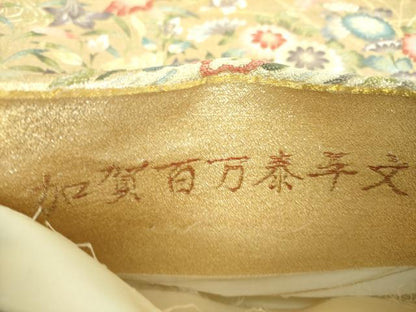 加賀百万泰平文